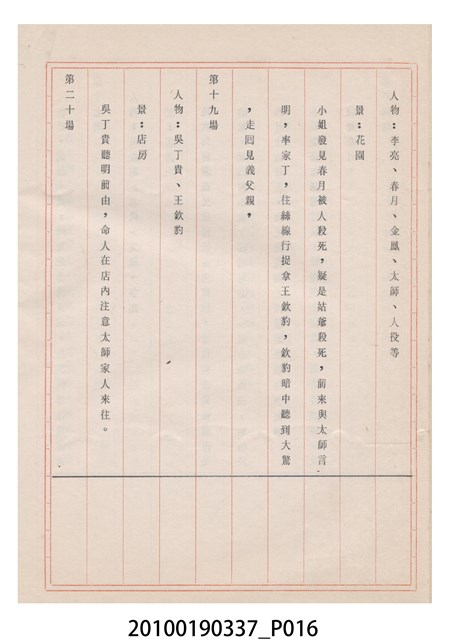 人物：李亮、春月、金鳳、太師、人役等
景：花園
小姐發見春月被人殺死，疑是姑爺殺死，前來與太師言
明，率家丁，往絲線行捉拿王欽豹，欽豹暗中聽到大驚
，走回見義父親，
第十九場
人物：吳丁貴、王欽豹
景：店房
吳丁貴聽明前由，命人在店內注意太師家人來往。
第二十場
20100190337_P016